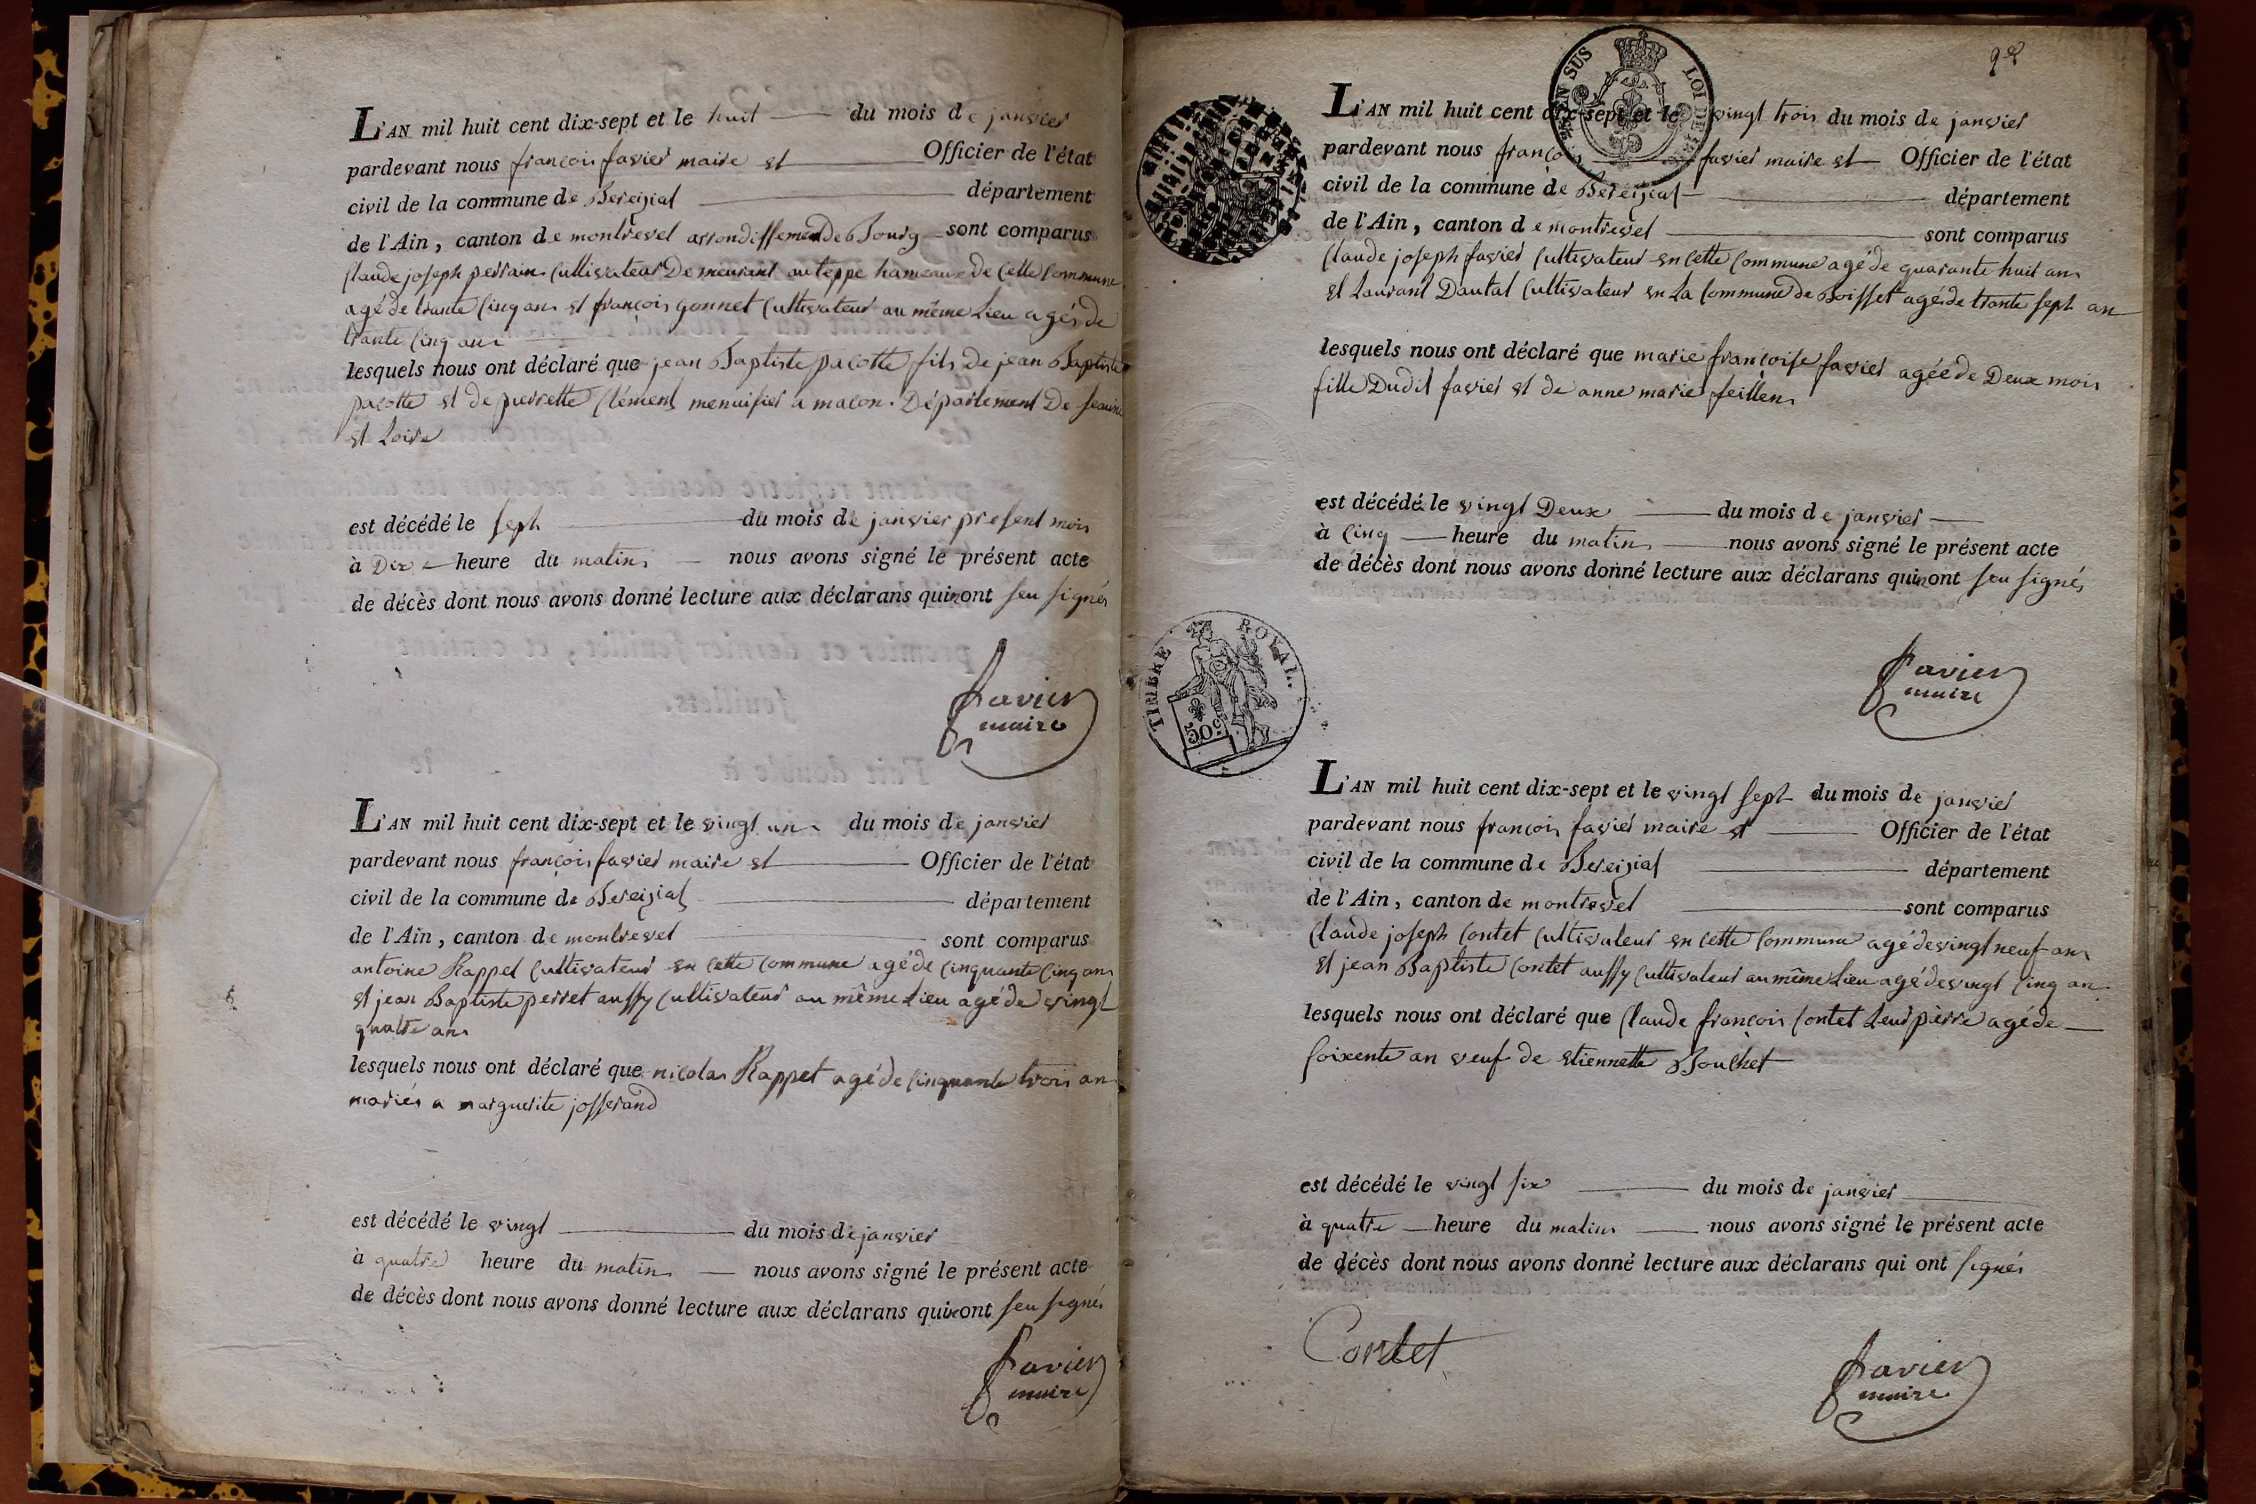 L'AN mil huit cent dix-sept et le huit du mois de janvier
pardevant nous françois favier maire et Officier de l'état
civil de la commune de Bereiziat département
de l'Ain, canton de montrevel arrondissement de Bourg sont comparus
Claude joseph perrain Cultivateur Demeurant au teppe hameaux de Cette Commune
agé de trante Cinq ans et françois gonnet Cultivateur au même Lieu agés de
trante Cinq ans
lesquels nous ont déclaré que jean Baptiste pacotte fils de jean Baptiste
pacotte et de pierrette Clément menuisier a macon. Département De Seaine
et Loire
est décédé le sept du mois de janvier présent mois
à Dix heure du matin nous avons signé le présent acte
de décès dont nous avons donné lecture aux déclarans qui n'ont seu signés
favier
maire
L'AN mil huit cent dix-sept et le vingt un du mois de janvier
pardevant nous françois favier maire et Officier de l'état
civil de la commune de Bereiziat département
de l'Ain, canton de montrevel sont comparus
antoine Rappet Cultivateur en cette commune agé de cinquante cinq ans
et jean Baptiste perret aussy Cultivateur au même Lieu agé de vingt
quatre ans
lesquels nous ont déclaré que nicolas Rappet agé de cinquante trois an
mariés a marguerite josserand
est décédé le vingt du mois de janvier
à quatre heure du matin nous avons signé le présent acte
de décès dont nous avons donné lecture aux déclarans qui n'ont seu signés
favier
maire
LOI DE
EN SUS
TIMBRE ROYAL.
50 c
L'AN mil huit cent dix-sept et le vingt trois du mois de janvier
pardevant nous françois favier maire et Officier de l'état
civil de la commune de Bereiziat département
de l'Ain, canton de montrevel sont comparus
Claude joseph favier Cultivateur en Cette Commune agé de quarante huit ans
et Laurant Dautal Cultivateur en La Commune de Boisset agés de trante sept an
lesquels nous ont déclaré que marie françoise favier agée de Deux mois
fille Dudit favier et de anne marie feillen
est décédé le vingt Deux du mois de janvier
à Cinq heure du matin nous avons signé le présent acte
de décès dont nous avons donné lecture aux déclarans qui n'ont seu signés
favier
maire
L'AN mil huit cent dix-sept et le vingt sept du mois de janvier
pardevant nous françois favier maire et Officier de l'état
civil de la commune de Bereiziat département
de l'Ain, canton de montrevel sont comparus
Claude joseph Contet Cultivateur en Cette Commune agé de vingt neuf ans
et jean Baptiste Contet aussy Cultivateur au même Lieu agé de vingt Cinq an
lesquels nous ont déclaré que Claude françois Contet Leur pèrre agé de
soixente an veuf de etiennette Bouchet
est décédé le vingt six du mois de janvier
à quatre heure du matin nous avons signé le présent acte
de décès dont nous avons donné lecture aux déclarans qui ont signés
Contet
favier
maire